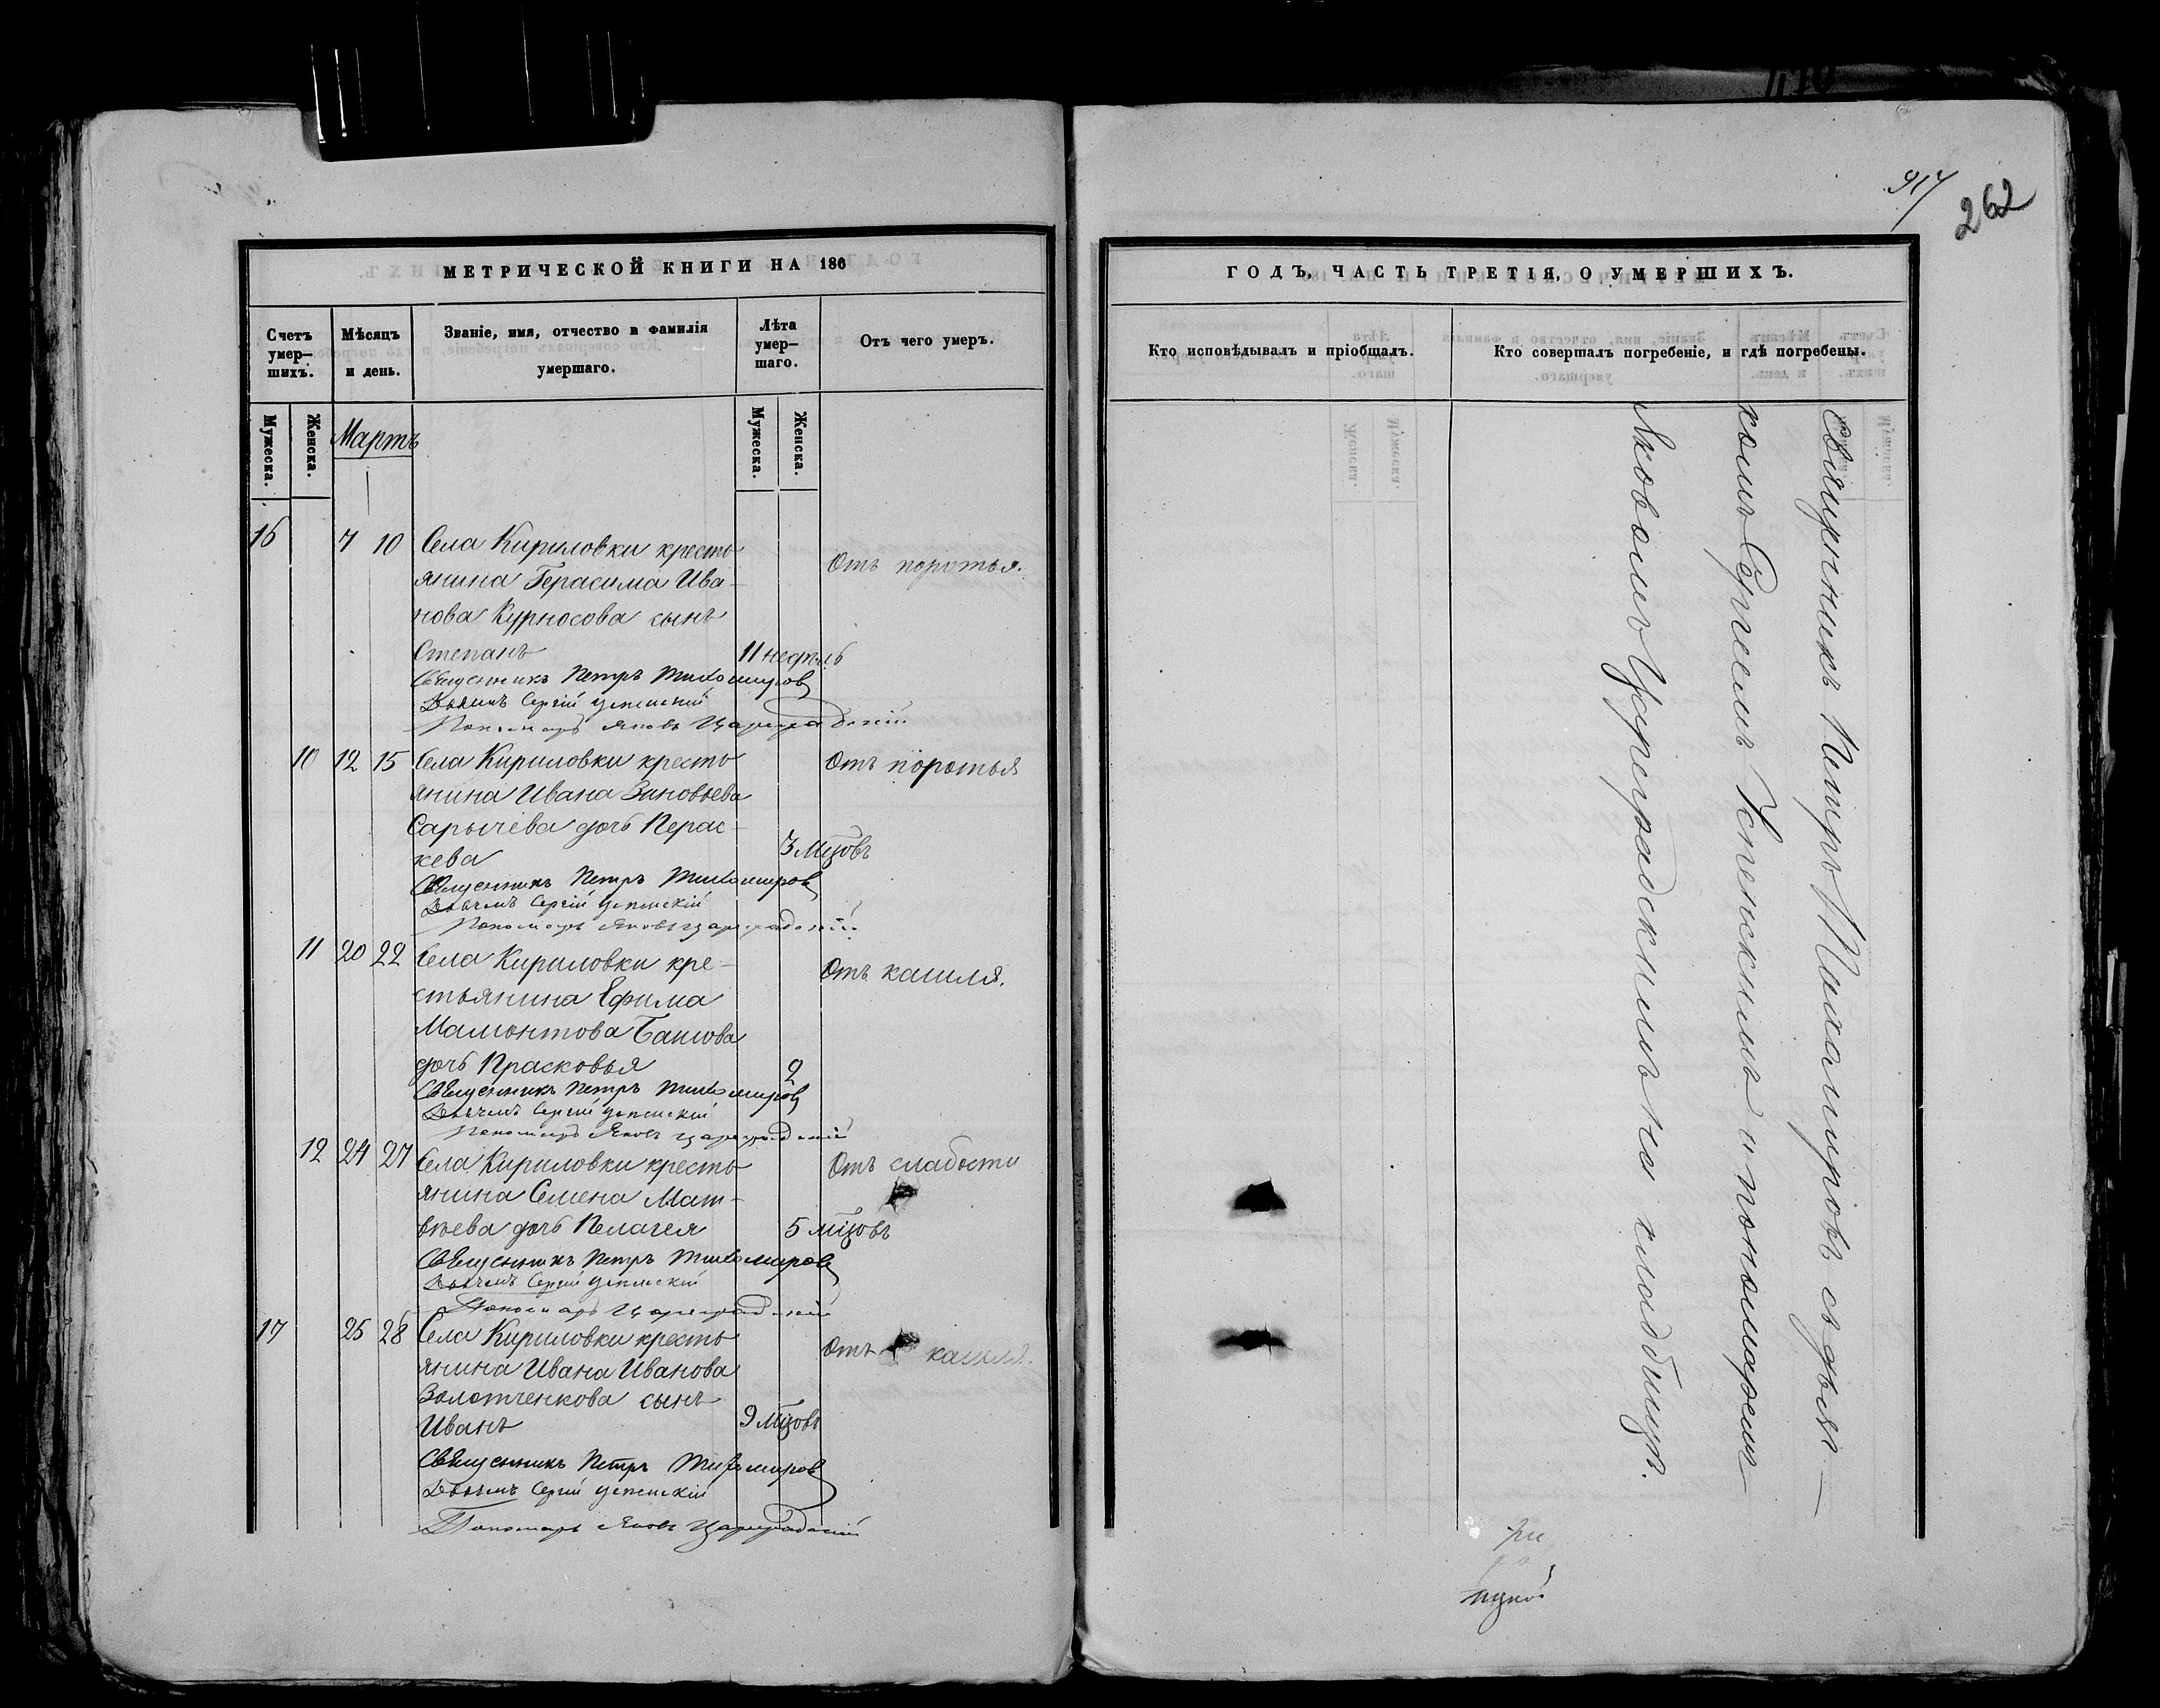 МЕТРИЧЕСКОЙ КНИГИ НА 186
Счетъ умер— шихъ.
Мѣсяцъ и день.
Званіе, имя, отчество и фамилія умершаго.
Лѣта умер— шаго.
Отъ чего умеръ.
Мужеска.
Женска.
Мартъ
Мужеска.
Женска.
16 7 10 Села Кириловки кресть
янина Герасима Ива-
нова Курносова сынъ
Степанъ 11 недѣль
Отъ поротья.
Священникъ Петръ Тихомировъ
Дьячекъ Сергій Успенскій
Пономарь Яковъ Цареградскій
10 12 15 Села Кириловки кресть
янина Ивана Зиновьева
Сарычева дочь Перас-
кева 3 мцовъ
Отъ поротья
Священникъ Петръ Тихомировъ
Дьячекъ Сергій Успенскій
Пономарь Яковъ Цареградскій
11 20 22 Села Кириловки кре-
стьянина Ефима
Мамонтова Башова
дочь Прасковья 2
Отъ кашля.
Священникъ Петръ Тихомировъ
Дьячекъ Сергій Успенскій
Пономарь Яковъ Цареградскій
12 24 27 Села Кириловки кресть
янина Семена Мат-
вѣева дочь Пелагея 5 мцовъ
Отъ слабости
Священникъ Петръ Тихомировъ
Дьячекъ Сергій Успенскій
Пономарь Цареградскій
17 25 28 Села Кириловки кресть
янина Ивана Иванова
Золотченкова сынъ
Иванъ 9 мцовъ
Отъ кашля.
Священникъ Петръ Тихомировъ
Дьячекъ Сергій Успенскій
Пономарь Яковъ Цареградскій
917
262
ГОДЪ, ЧАСТЬ ТРЕТІЯ, О УМЕРШИХЪ.
Кто исповѣдывалъ и пріобщалъ.
Кто совершалъ погребеніе, и гдѣ погребены.
Священникъ Петръ Тихомировъ съ дьяч—
комъ Сергеемъ Успенскимъ и пономаремъ
Яковомъ Цареградскимъ на кладбищѣ.